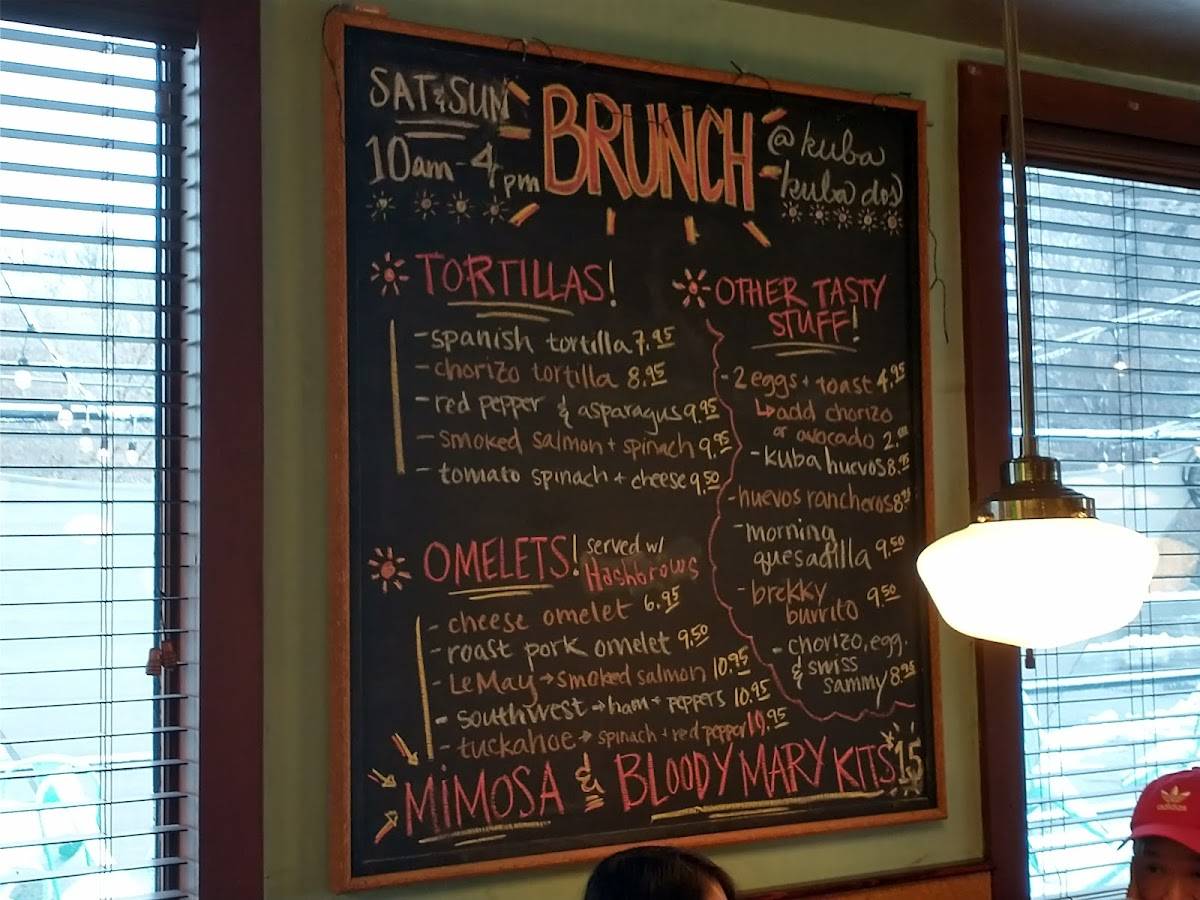 SAT & SUN
10am - 4pm
BRUNCH
@ kuba
kuba dos
TORTILLAS!
- spanish tortilla 7.95
- chorizo tortilla 8.95
- red pepper & asparagus 9.95
- smoked salmon + spinach 9.95
- tomato spinach + cheese 9.50
OMELETS! served w/
Hashbrows
- cheese omelet 6.95
- roast pork omelet 9.50
- LeMay → smoked salmon 10.95
- southwest → ham + peppers 10.95
- tuckahoe → spinach + red pepper 10.95
OTHER TASTY
STUFF!
- 2 eggs + toast 4.95
↳ add chorizo
or avocado 2.00
- kuba huevos 8.95
- huevos rancheros 8.95
- morning
quesadilla 9.50
- brekky
burrito 9.50
- chorizo, egg.
& swiss
sammy 8.95
MIMOSA & BLOODY MARY KITS $15
adidas